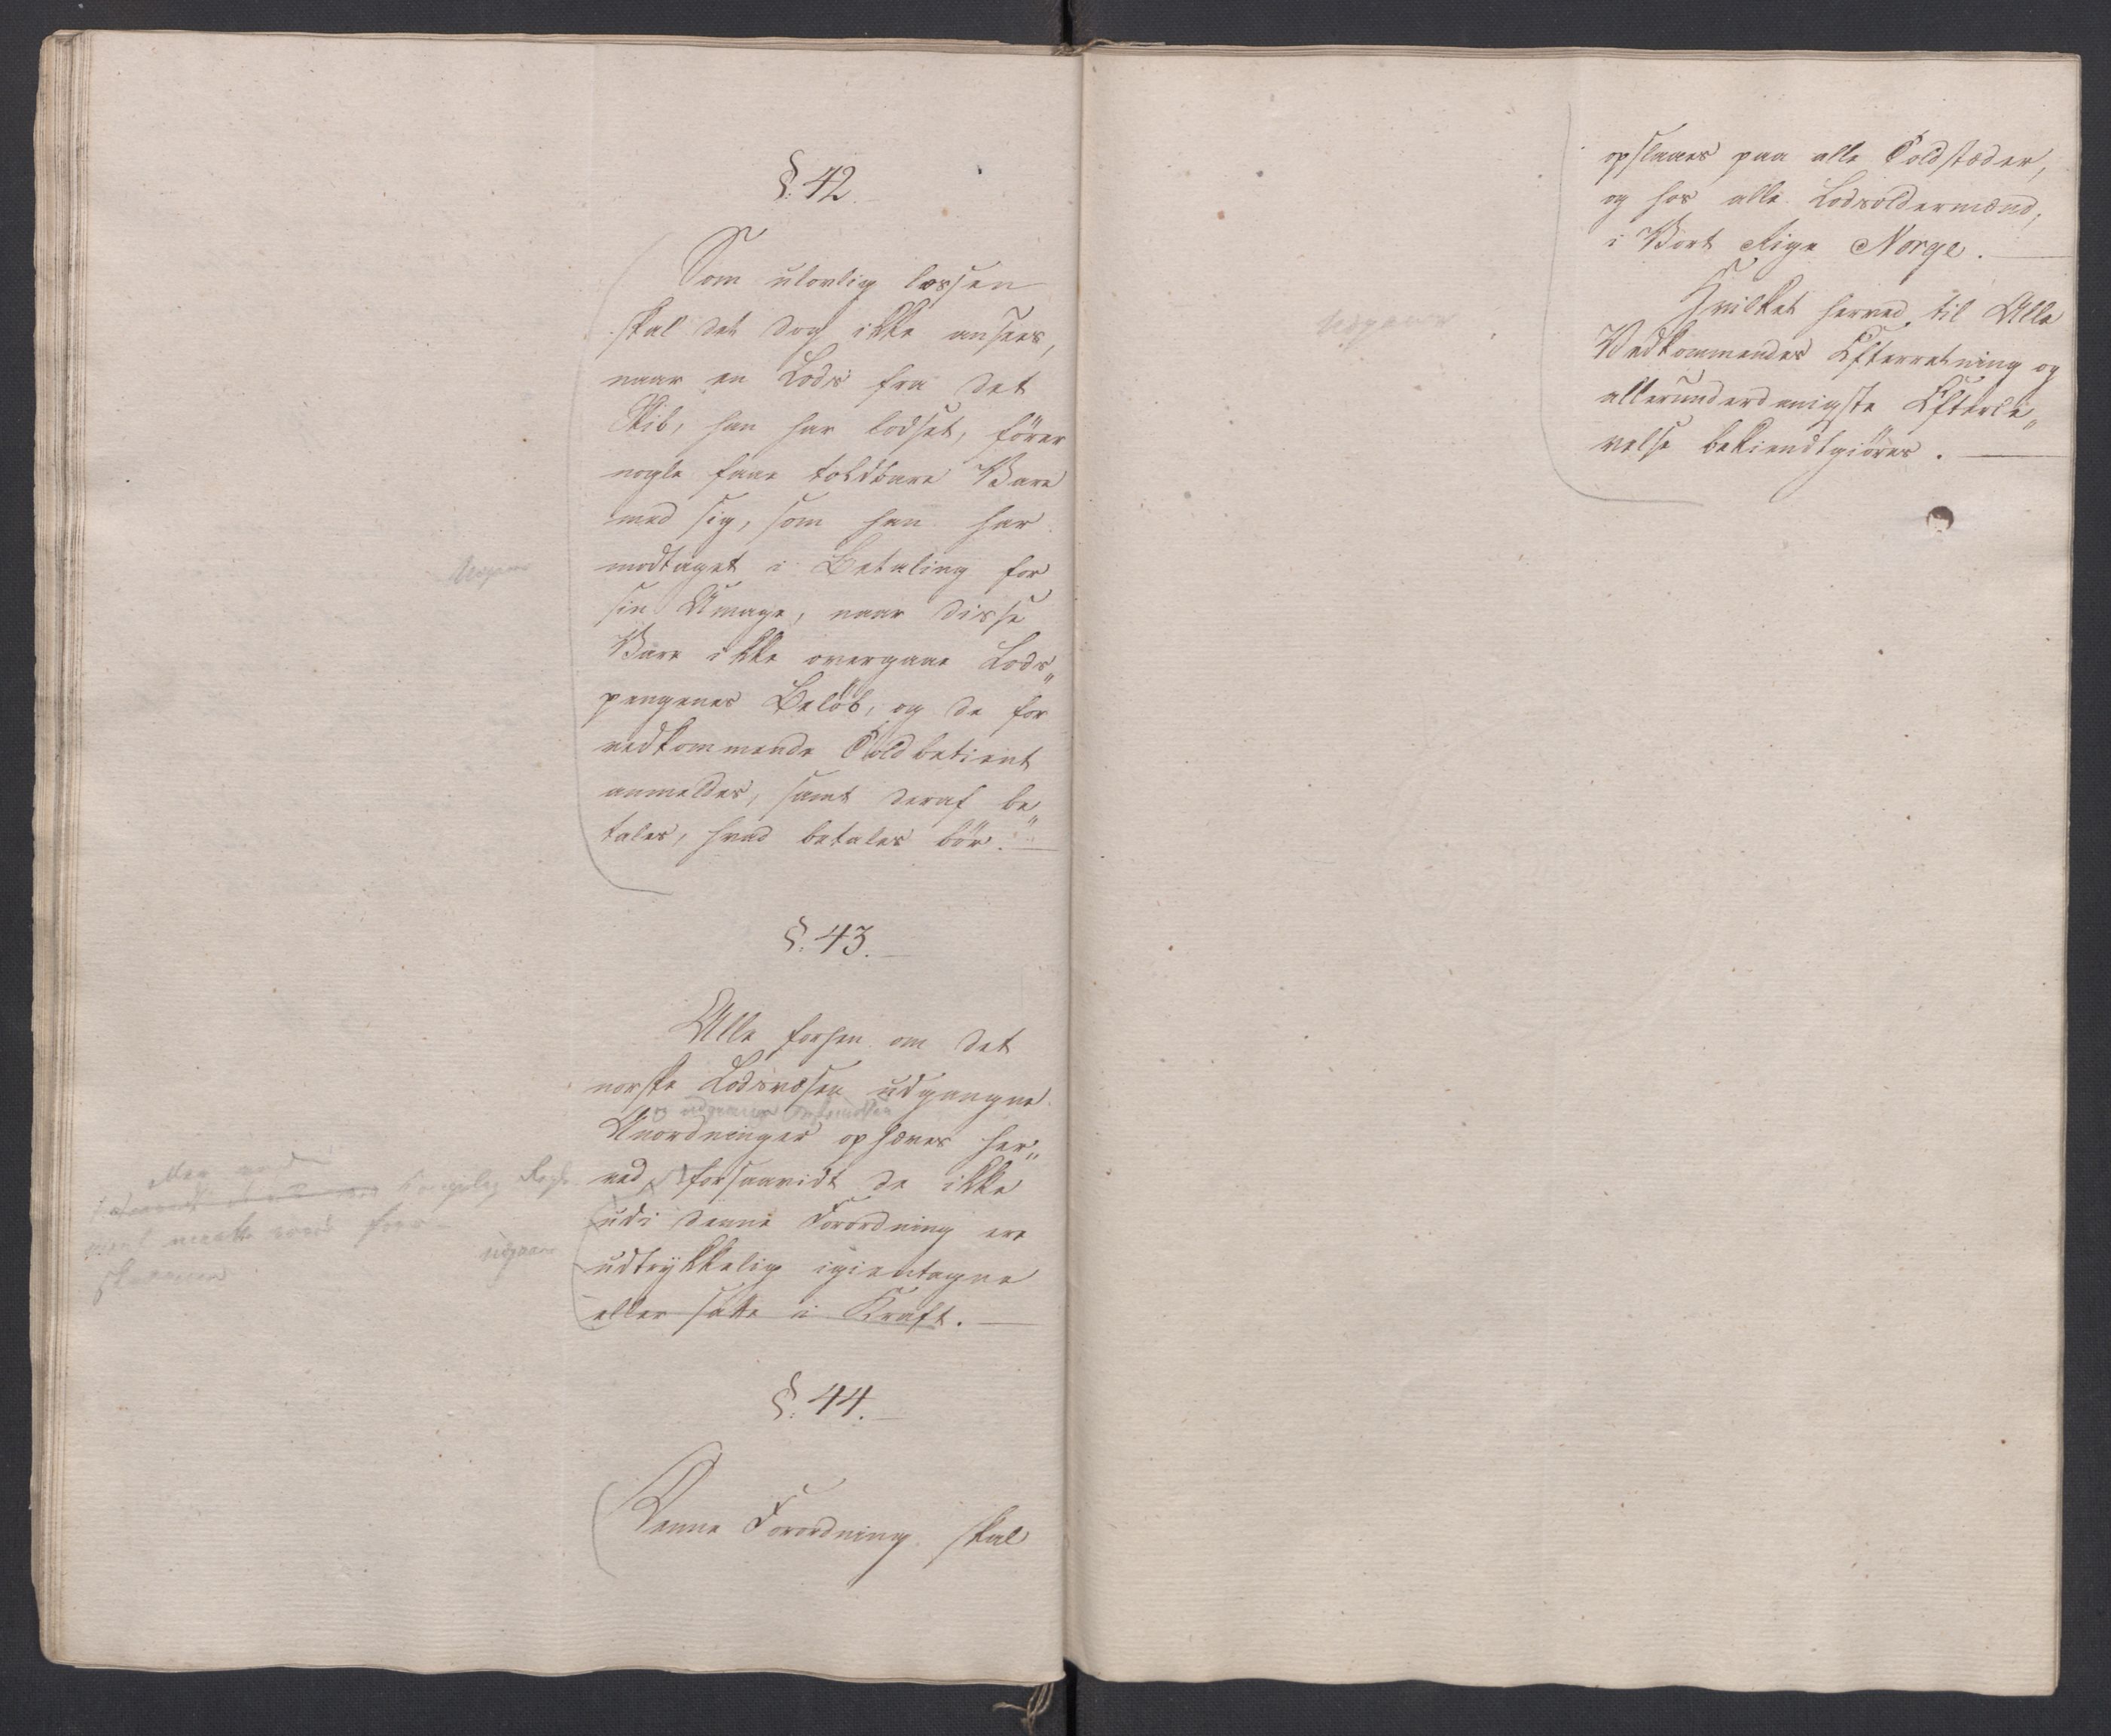 §: 42.
Som ulovlig lossen
skal det dog ikke ansees,
naar en Lods fra det
Skib, han har lodset, fører
nogle faae toldbare Vare
med sig, som han har
modtaget i Betaling for
sin Umage, naar disse
Vare ikke overgaae Lods„
pengenes Beløb, og de for
vedkommende Toldbetient
anmeldes, samt deraf be„
tales, hvad betales bør.
Udgaaer
§: 43.
Alle forhen om det
norske Lodsvæsen udgangne
Anordninger ophæves her„
ved, forsaavidt de ikke
udi denne Forordning ere
udtrykkelig igientagne
eller satte i Kraft.
eller ved
Kongelig
maatte vorde
udgaaer
§: 44.
Denne Forordning skal
opslaaes paa alle Toldstæder,
og hos alle Lodsoldermænd,
i Vort Rige Norge.
Hvilket herved til Alle
Vedkommendes Efterretning og
allerunderdanigste Efterle„
velse bekiendtgiøres.
Udgaaer